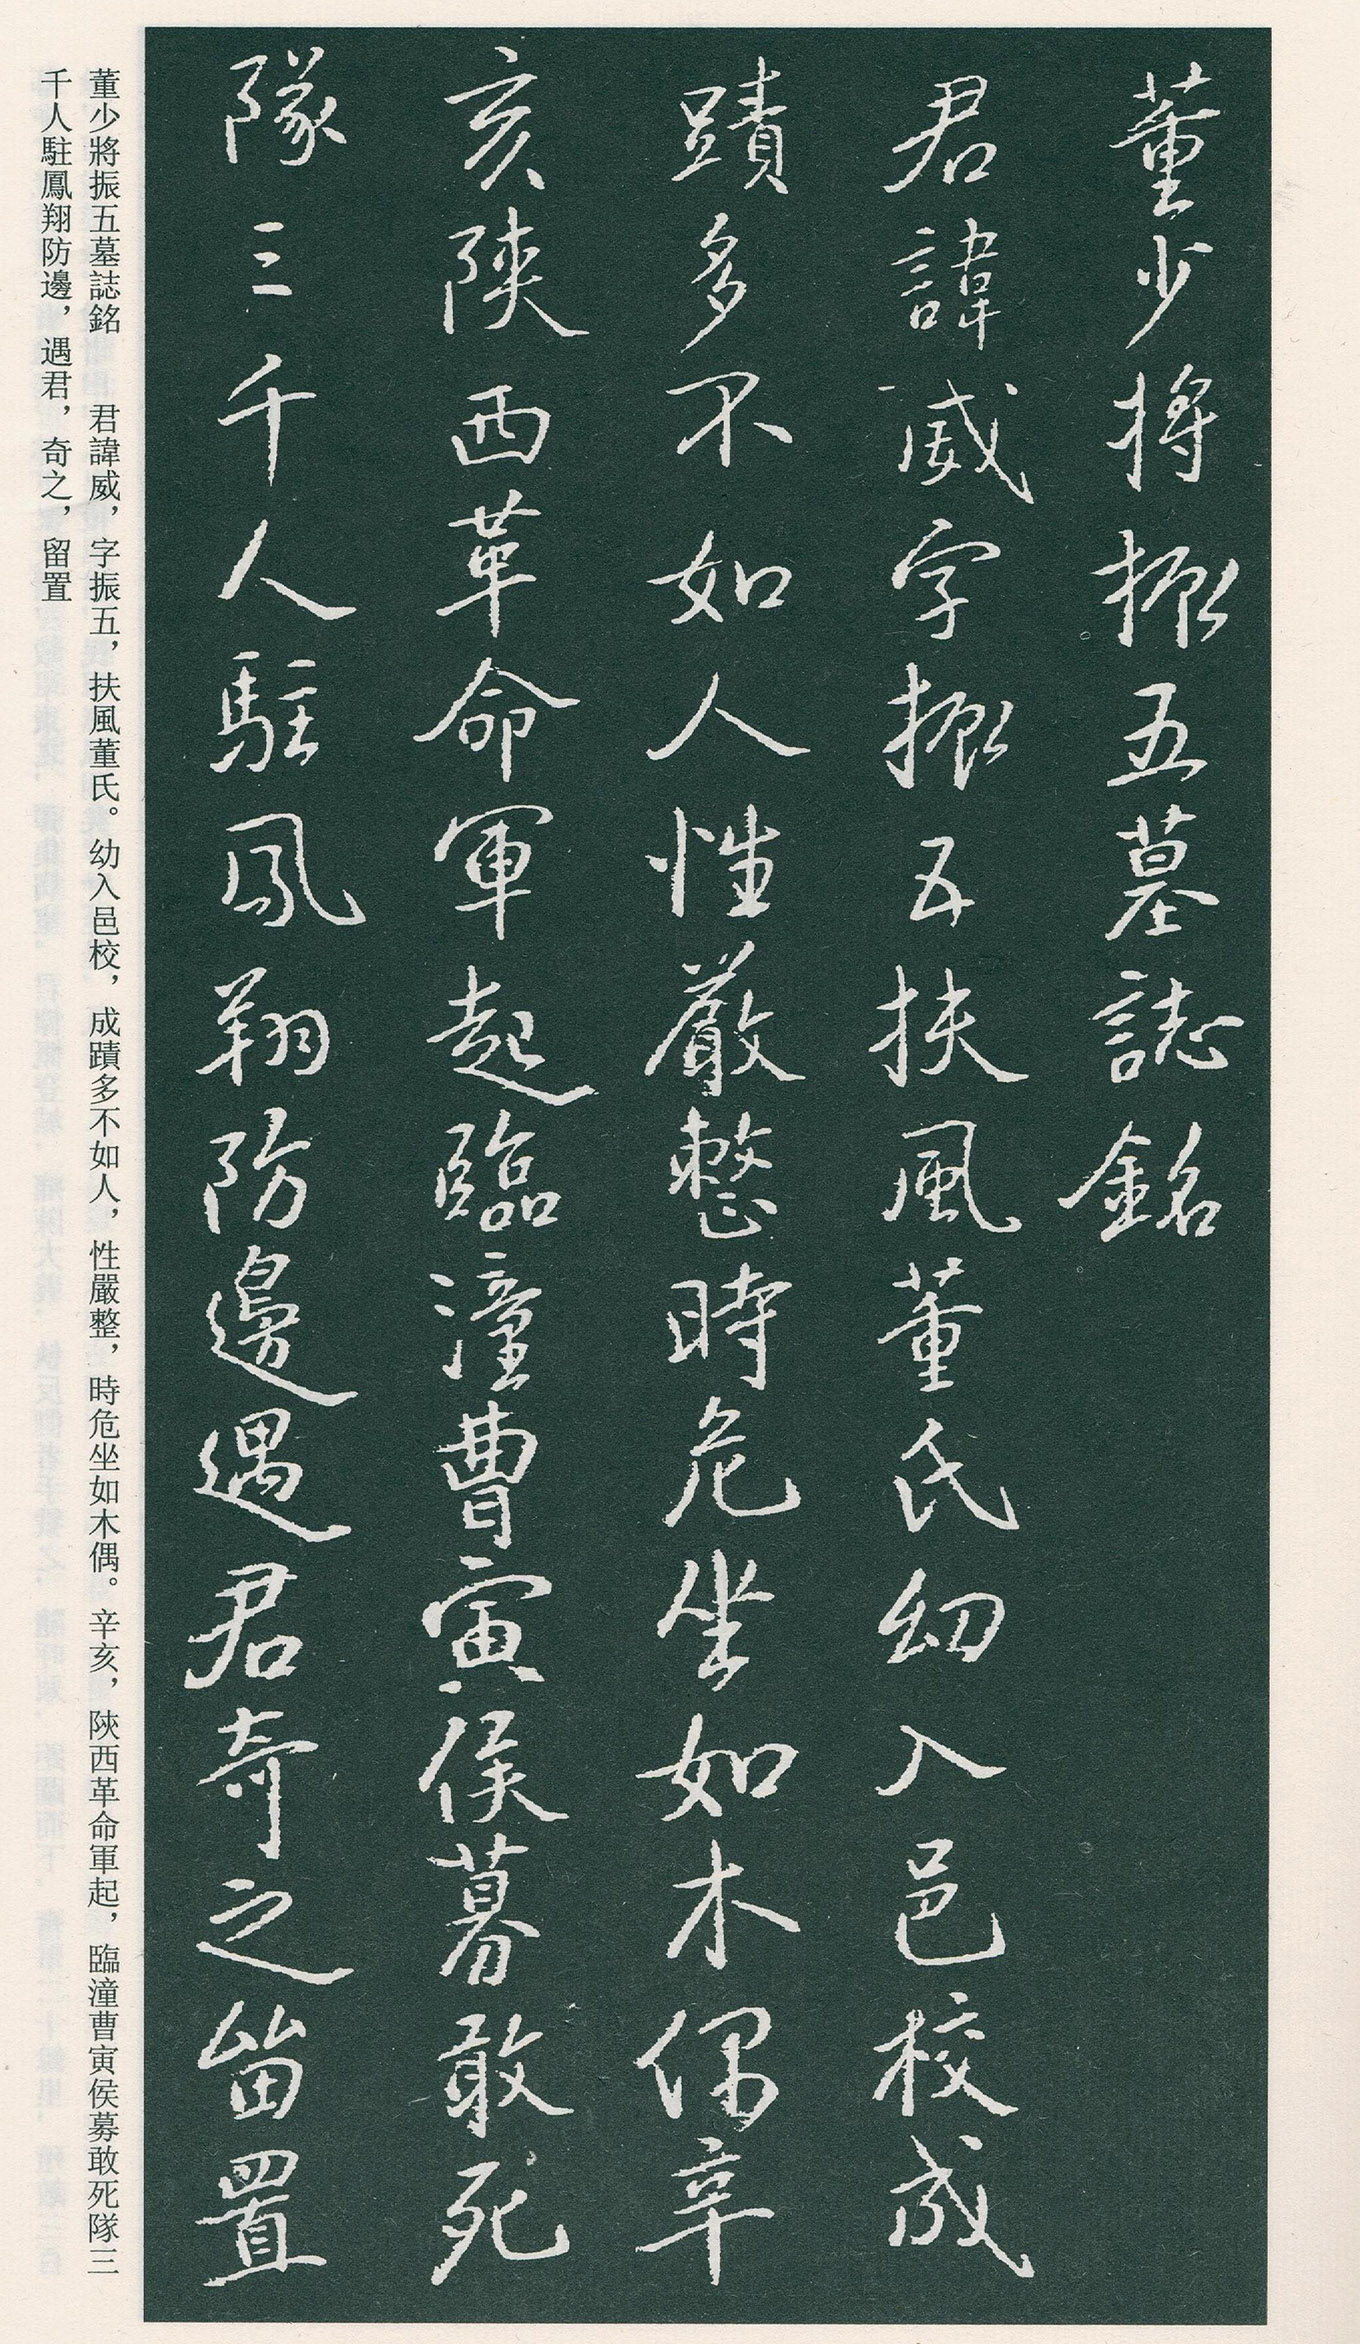 董少將振五墓誌銘
君諱威字振五扶風董氏幼入邑校成
蹟多不如人性嚴整時危坐如木偶辛
亥陝西革命軍起臨潼曹寅侯募敢死
隊三千人駐鳳翔防邊遇君奇之留置
董少將振五墓誌銘　君諱威，字振五，扶風董氏。幼入邑校，成蹟多不如人，性嚴整，時危坐如木偶。辛亥，陝西革命軍起，臨潼曹寅侯募敢死隊三
千人駐鳳翔防邊，遇君，奇之，留置